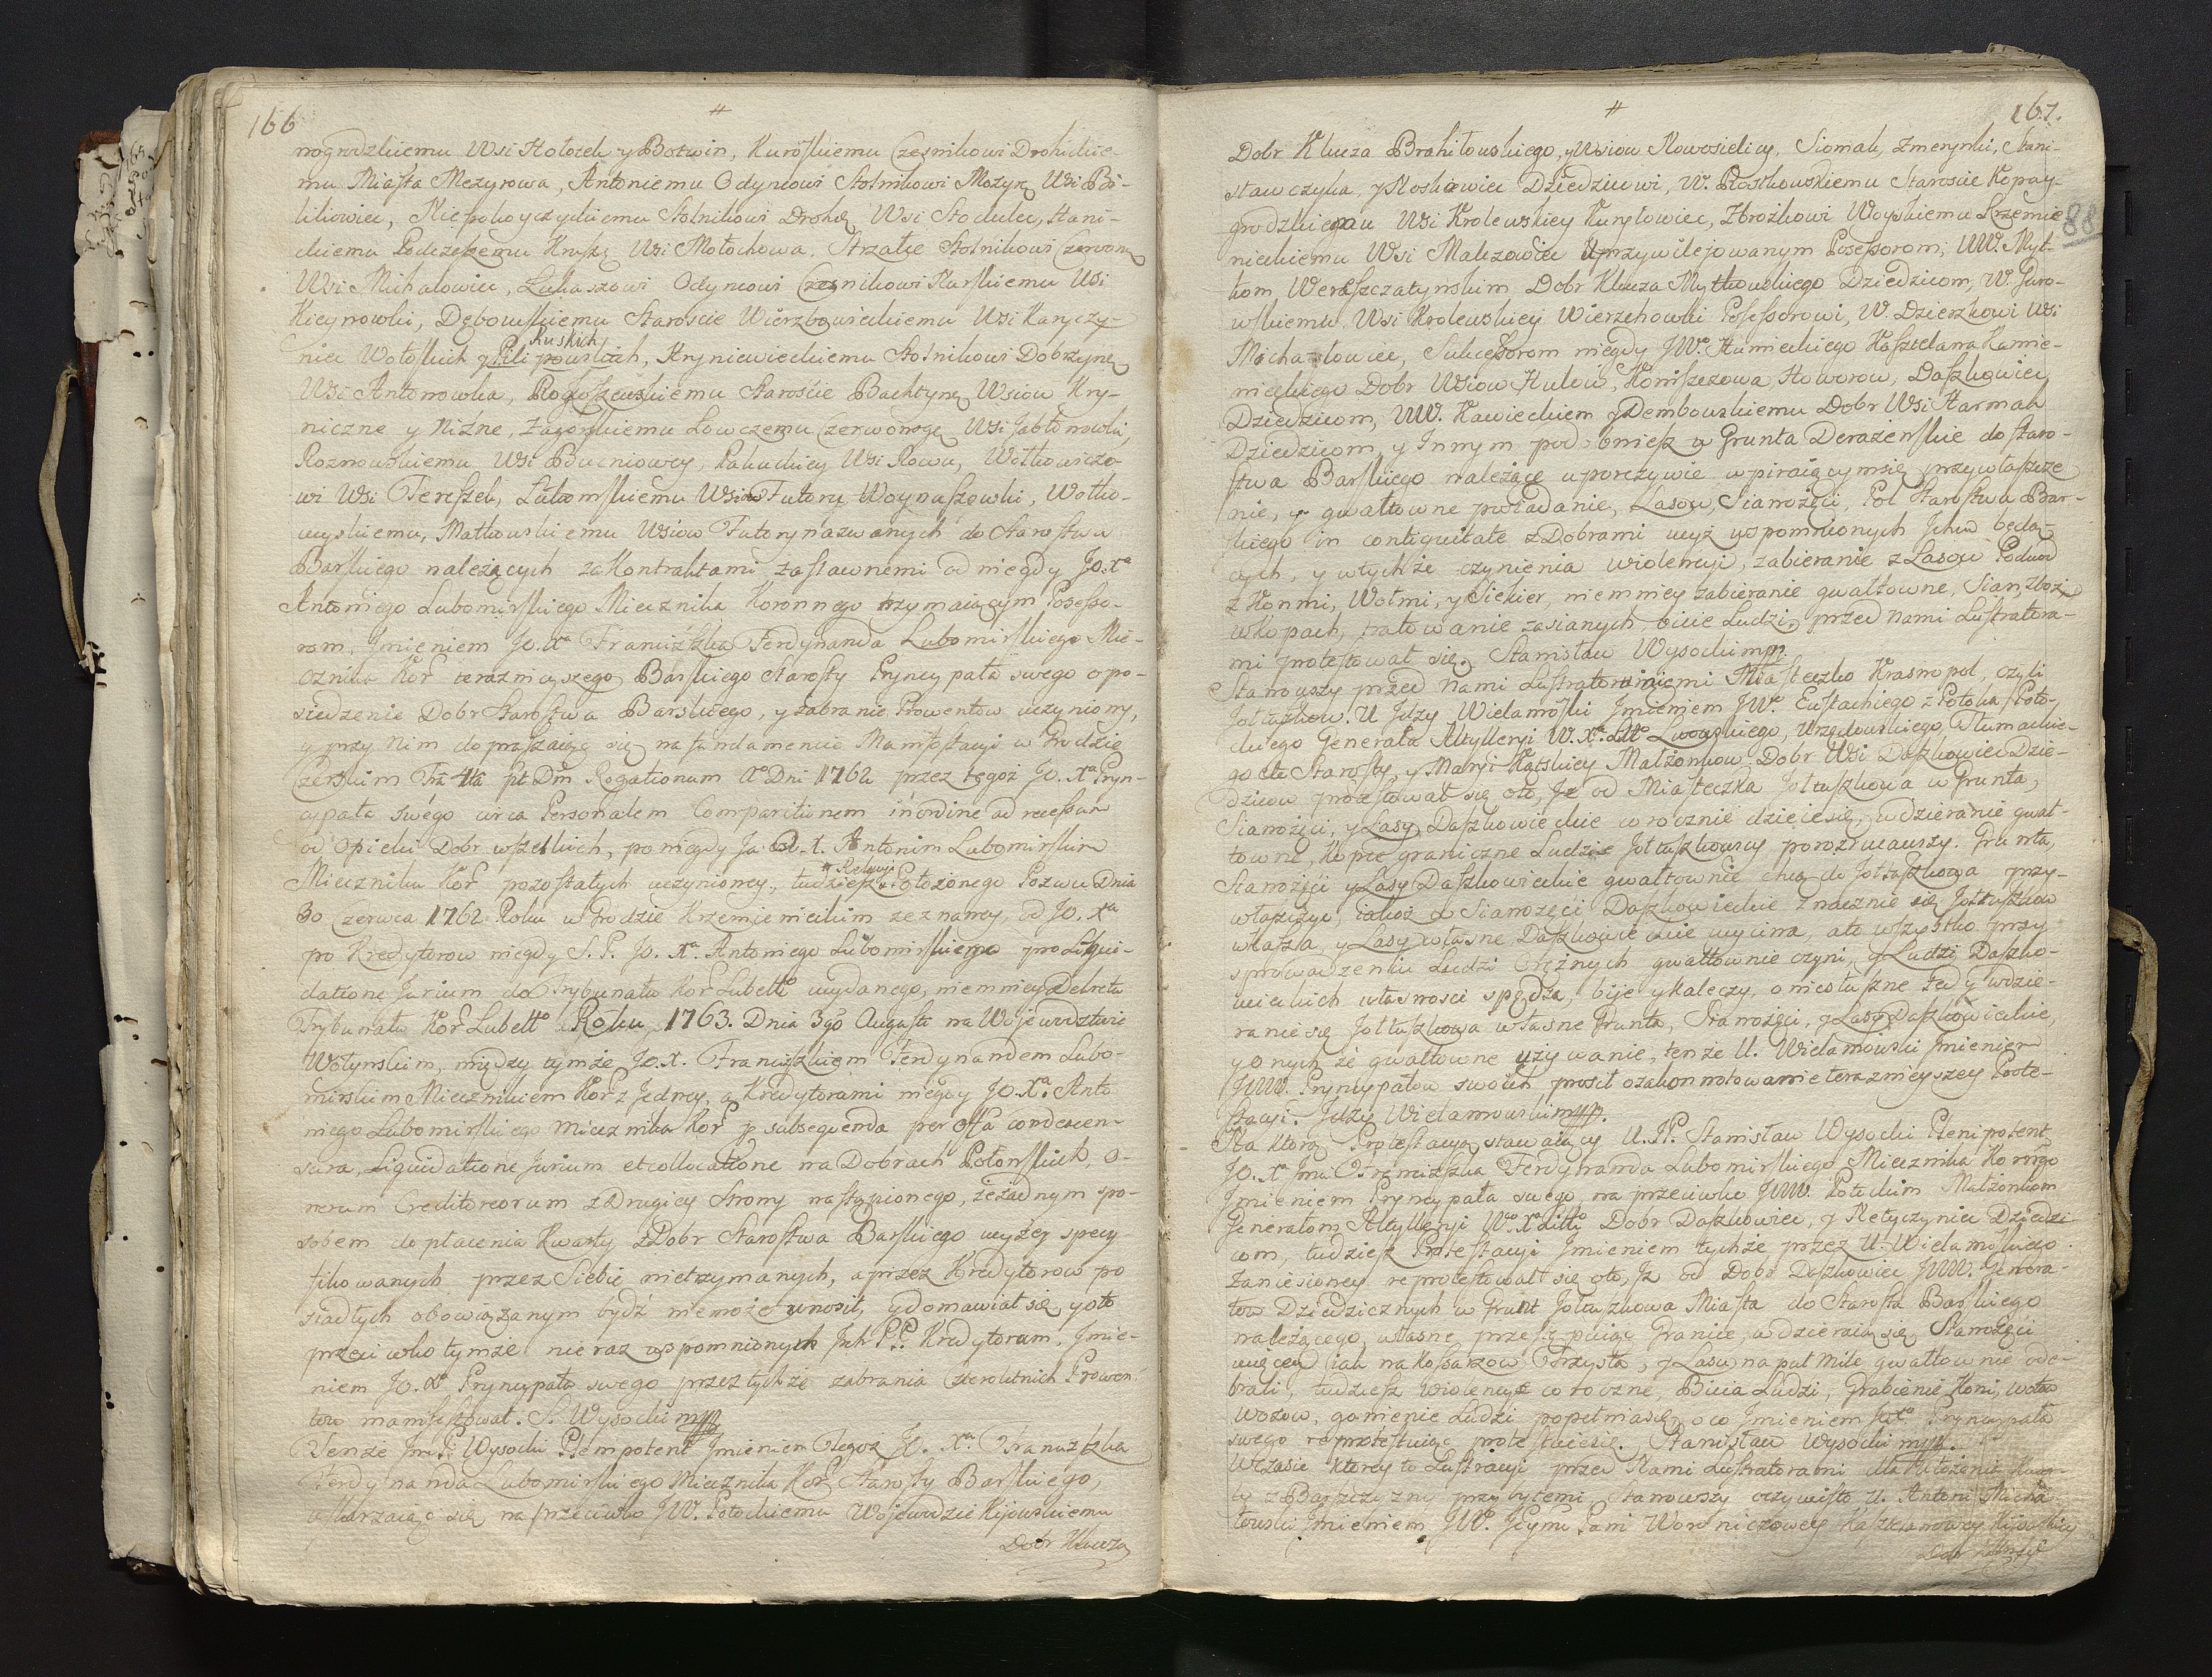 166
nogrodzkiemu Wsi Hołozek y Borwin, Kurowskiemu Czesnikowi Drohickie-
mu Miasta Mezyrowa, Antoniemu Odyncowi Stolnikowi Mozyrs Wsi Bi-
likowiec, Niepokoyczyckiemu Stolnikowi Drohic Wsi Stodulec, Stani-
ckiemu Podczeszemu Wsi Mołochowa, Strzałce Stolnikowi Czerwon
Wsi Michałowiec, Łukaszowi Odyncowi Czesnikowi Parskiemu Wsi
Kieynowki, Dębowskiemu Staroscie Wierzbowieckiemu Wsi Karyczy-
Ruskich
niec Wołoskich y Pilipowskich, Hryniewieckiemu Stolnikowi Dobrzyns
Wsi Antonowka, Rogoszewskiemu Staroscie Bachtyns Wsiow Kry-
niczne y Niżne, Zagorskiemu Łowczemu Czerwonogr Wsi Jabłonowki,
Roznowskiemu Wsi Bucniowcy, Wsi Rowu, Wołkowiczo-
wi Wsi Tereszek, Lubomskiemu Wsiow Futory Woynaszowki, Wołko-
wyskiemu, Matkowskiemu Wsiow Futory nazwanych do Starostwa
Barskiego należących za Kontraktami zastawnemi od niegdy Jo. Xa
Antoniego Lubomirskiego Miecznika Koronnego trzymaiącym Possesso-
rom, Jmieniem Jo. Xa Franciszka Ferdynanda Lubomirskiego Mie-
cznika Kor teraznieyszego Barskiego Starosty Pryncypała swego o po-
siedzenie Dobr Starostwa Barskiego, y zabranie Prowentow uczyniony,
y przy Nim dopraszaiąc się na fundamencie Manifestacyi w Grodzie
Czerskim Fra 4ta pt Dm Rogationum Ao Dni 1762 przez tegoż Jo. Xa Pryn-
cypała swego circa Personalem Comparitionem in ordine ad recessum
od Opieki Dobr wszelkich, po niegdy Jo. X. Antonim Lubomirskim
Relacyi
Mieczniku Kor pozostałych uczynioney, tudziesz Położonego Pozwu Dnia
30 Czerwca 1762 Roku w Grodzie Krzemienieckim zeznaney, od Jo. Xa
po Kredytorow niegdy S. P. Jo. Xa Antoniego Lubomirskiego pro Liqui-
datione Jurium do Trybunału Kor Lubelło wydanego, niemniey Dekretu
Trybunału Kor Lubello Roku 1763. Dnia 3go Augusti na Wojewodztwie
Wołynskim, między tymże Jo. X. Franciszkiem Ferdynandem Lubo-
mirskim Miecznikiem Kor z Jedney, a Kredytorami niegdy Jo. Xa Anto
niego Lubomirskiego Miecznika Kor p subsequenda per Offa condescen-
sura, Liquidatione Jurium et collocatione na Dobrach Połonskich, o-
nerum Creditoreorum z Drugiey Strony nastąpionego, że żadnym spo-
sobem do płacenia Kwarty z Dobr Starostwa Barskiego wyżey specy-
fikowanych przez Siebie nietrzymanych, a przez Kredytorow po
siadłych obowiązanym bydź niemoże wnosił, y domawiał się, y oto
przeciwko tymże nie raz wspomnionych Jch P.P. Kredytorum, Jmie-
niem Jo. Xa Pryncypała swego przez tychże zabrania czteroletnich Prowen-
tow manifestował. S. Wysocki mpp
Tenże Jm P. Wysocki Plenipotent Jmieniem Tegoz Jo. Xa Franciszka
Ferdynanda Lubomirskiego Miecznika Kor Starosty Barskiego,
uskarzaiąc się na przeciwko JW. Potockiemu Wojewodzie Kijowskiemu
Dobr Klucza
167.
88
Dobr Klucza Brahiłowskiego, y Wsiow Nowosielicy, Siomak, Zmerynki, Stani-
sławczyka, y Noskowiec Dziedzicowi, W. Rostkowskiemu Staroscie Kopay-
grodzkiemu Wsi Krolewskiey Kuryłowiec, Zbrożkowi Woyskiemu Krzemie
nieckiemu Wsi Malczowiec Uprzywilejowanym Possessorom, WW. Myt-
kom Wereszczatynskim Dobr Klucza Mytkowskiego Dziedzicom, W. Giro-
wskiemu Wsi Krolewskiey Wierzchowki Possessorowi, W. Dzierzkowi Wsi
Michayłowiec, Sukcessorom niegdy JWo Humieckiego Kasztelana Kamie-
nieckiego Dobr Wsiow Kulow, Komszczowa, Howorow, Daszkowiec
Dziedzicom, WW. Kawieckiem y Dembowskiemu Dobr Wsi Harmak
Dziedzicom, y Jnnym podobniesz w Grunta Derażenskie do staro-
stwa Barskiego należące uporczywie wpiraiącymsię, przywłaszcze
nie, y gwałtowne posiadanie, Lasow, Sianożęci, Pol Starostwa Bar-
skiego in contiguitate z Dobrami wyż wspomnionych Jchm będą-
cych, y w tychże czynienia wiolencyi, zabieranie z Lasow Podwod
z Konmi, Wołmi, y Siekier, niemniey zabieranie gwałtowne, Sian, zboż
w Kopach, tratowanie zasianych, bicie Ludzi, przed nami Lustratora-
mi protestował się. Stanisław Wysocki mpp.
Stanowszy przed Nami Lustratoramiemi Miasteczko Krasnopol, czyli
Jołtuszkow. U Jdzy Wielamoski Jmieniem JWo Eustachiego z Potoka Poto-
ckiego Generała Artylleryi W. Xa Litto Lwowskiego, Urzędowskiego, Tłumackie-
go etc Starosty, y Maryi Kątskiey Małżonkow, Dobr Wsi Daszkowiec Dzie-
dzicow protestował się oto, Jż od Miasteczka Jołtuszkowa w Grunta,
Sianożęci, y Lasy Daszkowieckie corocznie dzieiesię, wdzieranie gwał-
towne, Kopce graniczne Ludzie Jołtuszkowscy porozrucawszy. Grunta,
Sianożęci y Lasy Daszkowieckie gwałtownie chcą do Jołtuszkowa przy-
właszczyc, iakoż w Sianożęci Daszkowieckie znacznie się Jołtuszkow
właszła, y Lasy własne Daszkowieckie wycina, a to wszystko przy
sprowadzeniu Ludzi Orężnych gwałtownie czyni, y Ludzi Daszko-
wieckich z własnosci spędza, bije y kaleczy, o niesłuszne tedy wdzie-
ranie się Jołtuszkowa w własne Grunta, Sianożęci, y Lasy Daszkowieckie,
y onychże gwałtowne używanie, tenże U. Wielamowski Jmieniem
JWW. Pryncypałow swoich prosił o zakonnotowanie teraznieyszey Prote-
stacyi. Jdzy Wielamowski mpp.
Na ktorą Protestacyą stawaiący U. JP. Stanisław Wysocki Plenipotent
Jo. Xa Jmci Franciszka Ferdynanda Lubomirskiego Miecznika Koronngo
Jmieniem Pryncypała swego, na przeciwko JWW. Potockim Małżonkom
Generałom Artylleryi Wo Xa Litto Dobr Daszkowiec, y Netyczyniec Dziedzi-
com, tudziesz Protestacyi Jmieniem tychże przez U. Wielamoskiego
Zaniesioney reprotestował się oto, Jż od Dobr Daszkowiec JWW. Genera-
łow Dziedzicznych w Grunt Jołtuszkowa Miasta do Starosta Barskiego
należącego, własne przestępuiąc Granice, wdzieraią się, Sianożęci
więcey iak na Kossarzow Trzysta, y Lasu na puł Mile gwałtownie ode-
brali, tudziesz wiolencye coroczne, Bicia Ludzi, Grabienie Koni, wołow
Wozow, gonienie Ludzi popełniasię, o co Jmieniem Pryncypała
swego reprotestuiąc protestuiesię. Stanisław Wysocki mpp.
Wczasie ktorey to Lustracyi przed Nami Lustratorami dla Ułożenia Kwar-
ty z Barszczyzny przybyłemi Stanowszy oczywisto U. Antoni Micha
łowski Jmieniem JWo Jeymci Pani Woroniczowey Kasztelanowey Kijowskiey